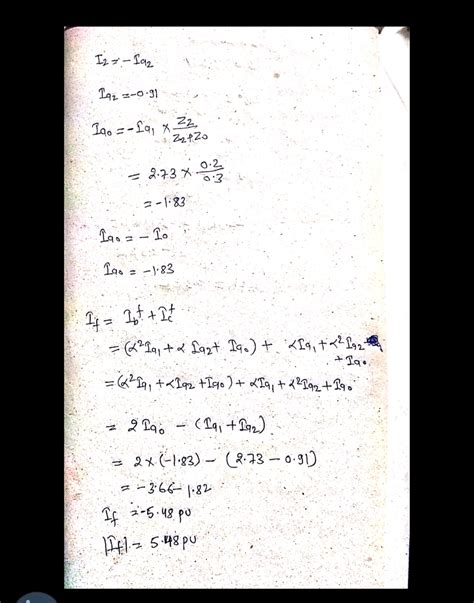 I2 = -Ia2
Ia2 = -0.91
Ia0 = -Ia1 × Z2/Z2+Z0
= 2.73 × 0.2/0.3
= -1.83
Ia0 = - I0
Ia0 = -1.83
If = Ib^f + Ic^f
= (α²Ia1 + α Ia2 + Ia0) + αIa1 + α²Ia2
+ Ia0
= (α²Ia1 + αIa2 + Ia0) + αIa1 + α²Ia2 + Ia0
= 2Ia0 - (Ia1 + Ia2)
= 2 × (-1.83) - (2.73 - 0.91)
= -3.66 - 1.82
If = -5.48 pu
|If| = 5.48 pu